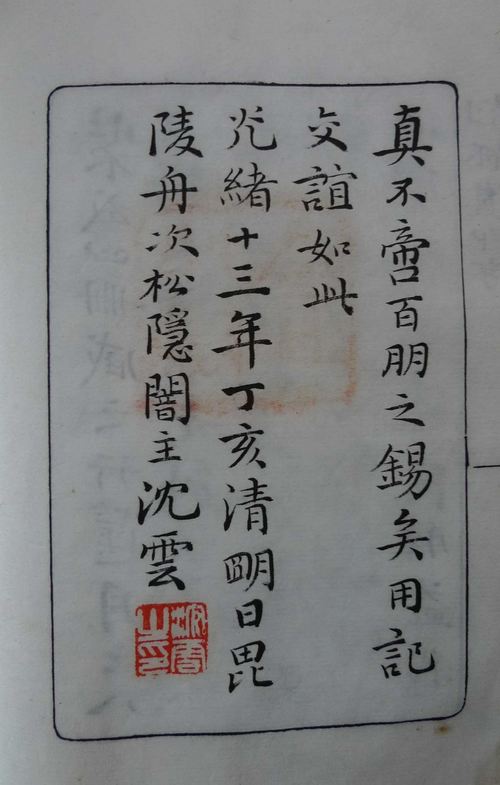 真不啻百朋之錫矣用記
交誼如此
光緒十三年丁亥清明日毘
陵舟次松隱闇主沈雲